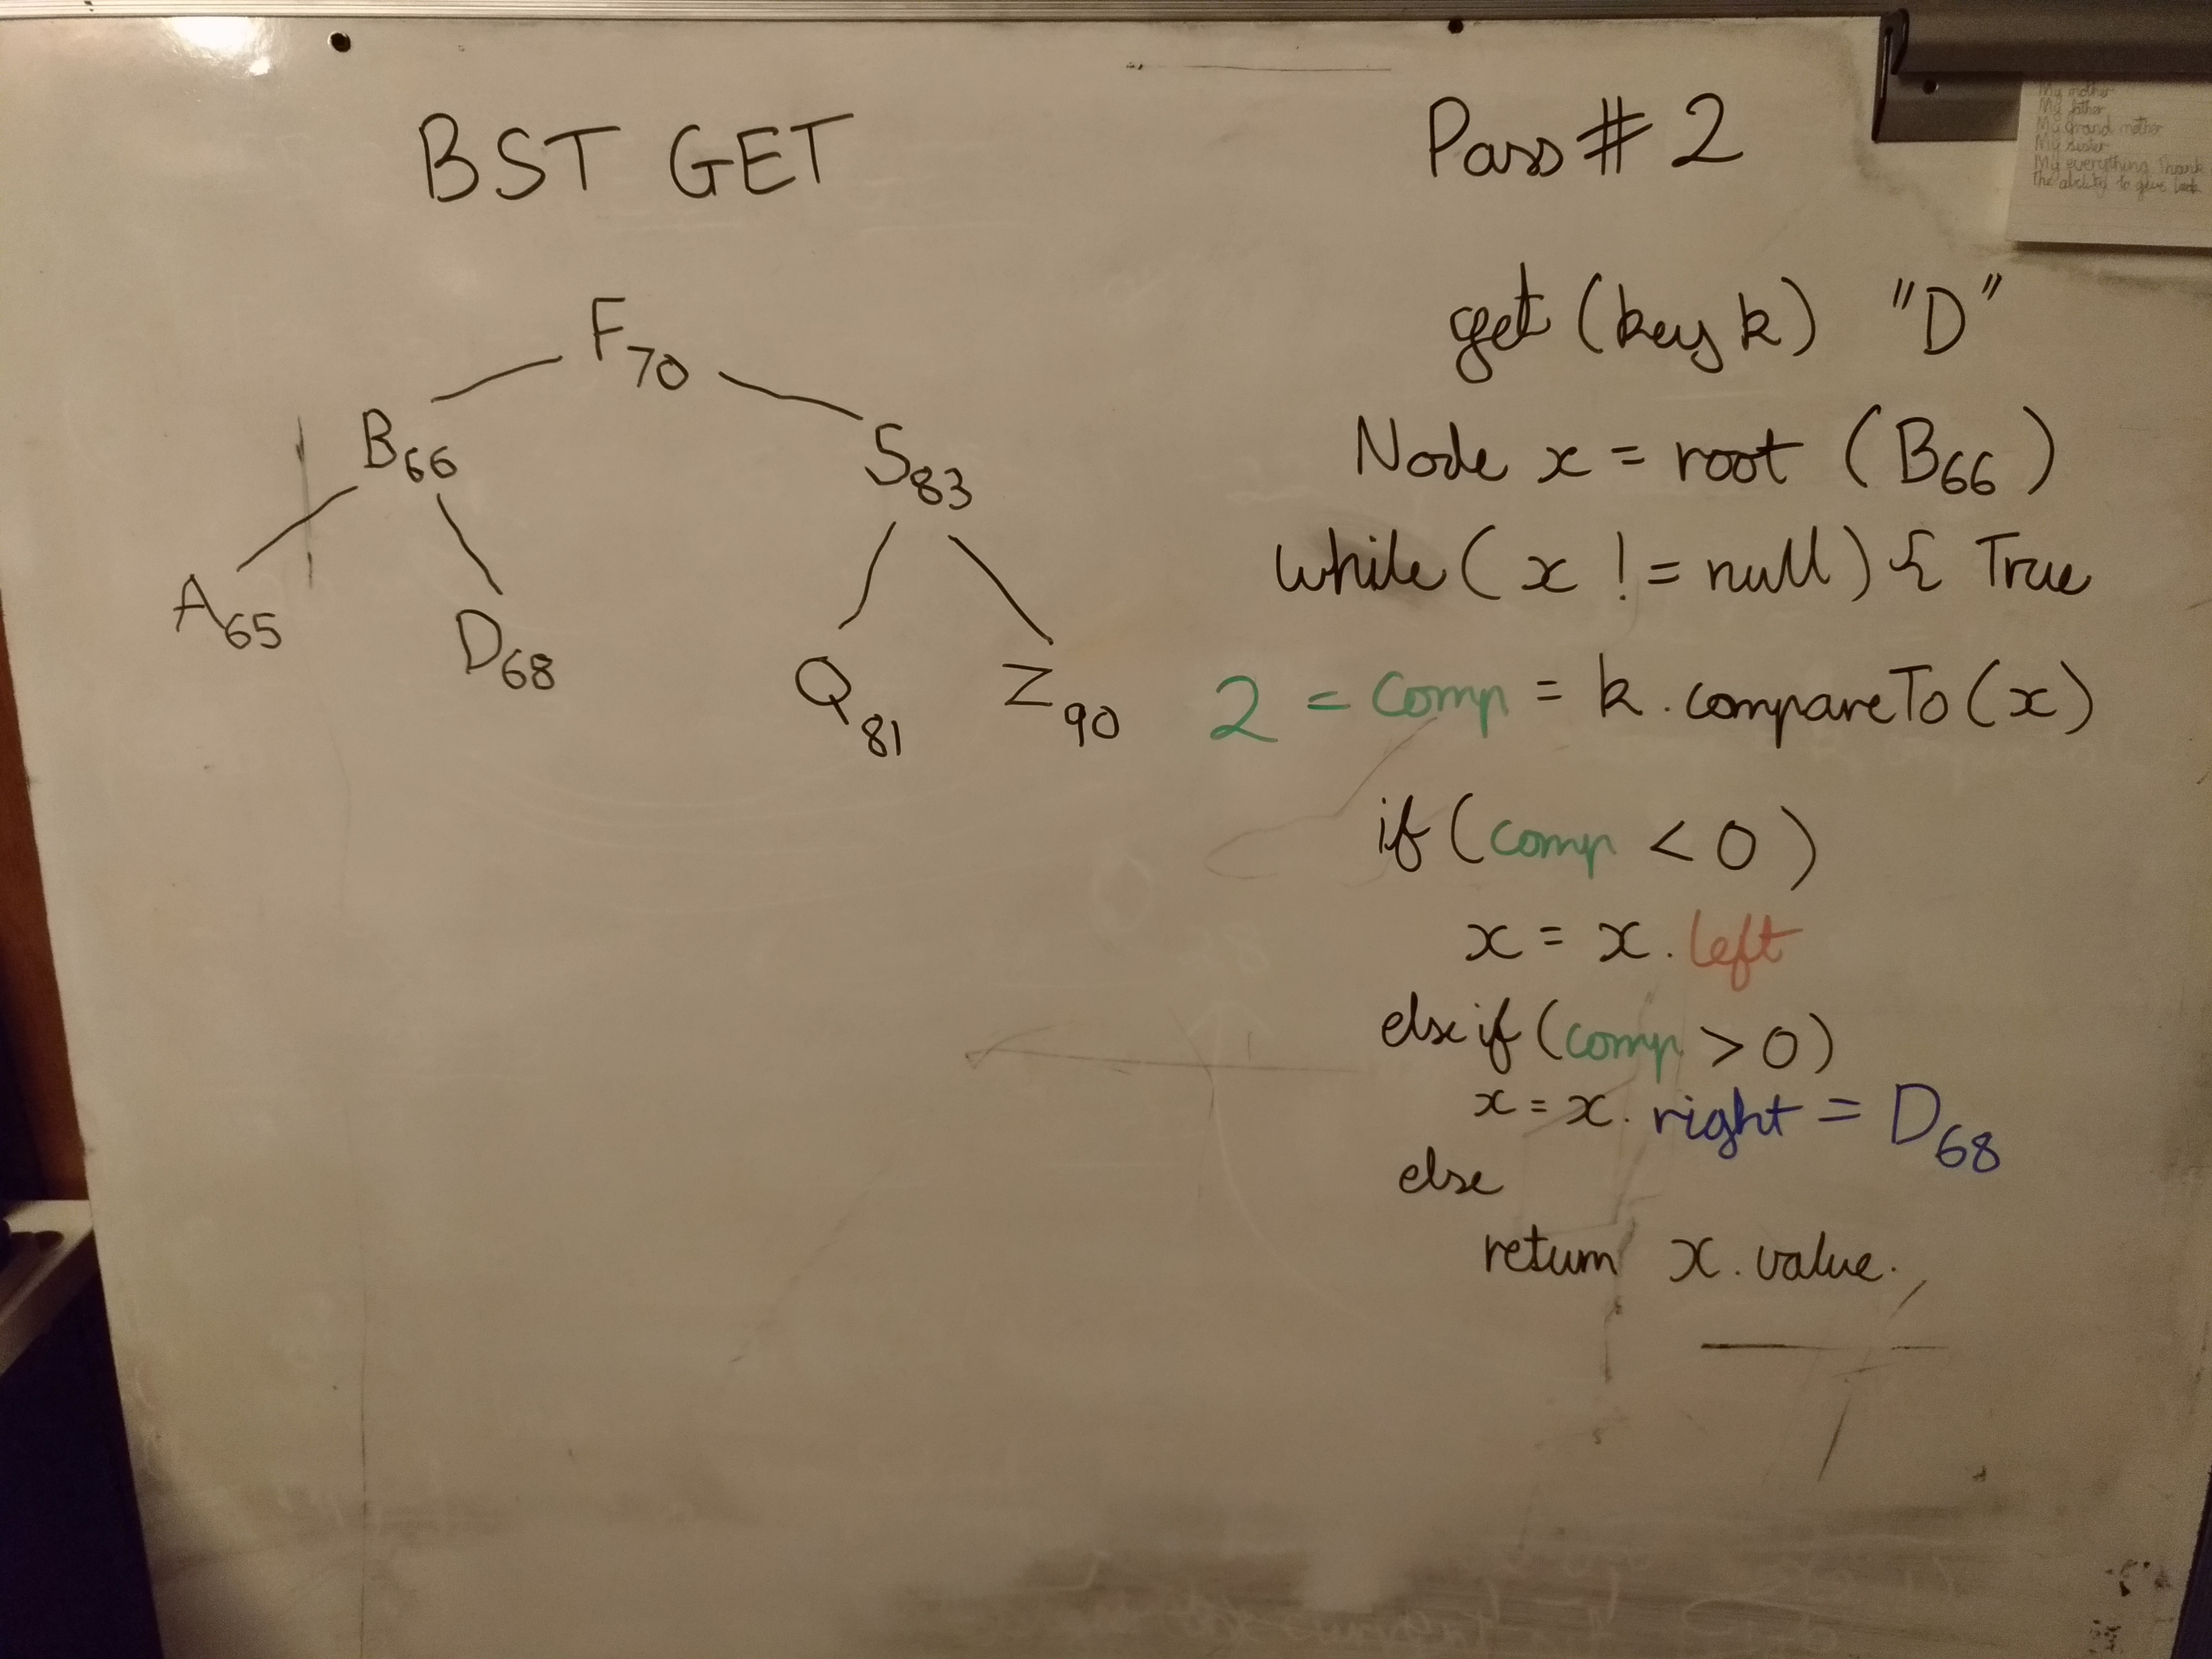 BST GET
F70
B66
S83
A65
D68
Q81
Z90
Pass # 2
get (key k) "D"
Node x = root (B66)
while ( x != null) { True
2 = comp = k.compareTo(x)
if (comp < 0)
x = x.left
else if (comp > 0)
x = x.right = D68
else
return x.value.
My mother
My father
My grand mother
My sister
My everything Thank
The ability to give back